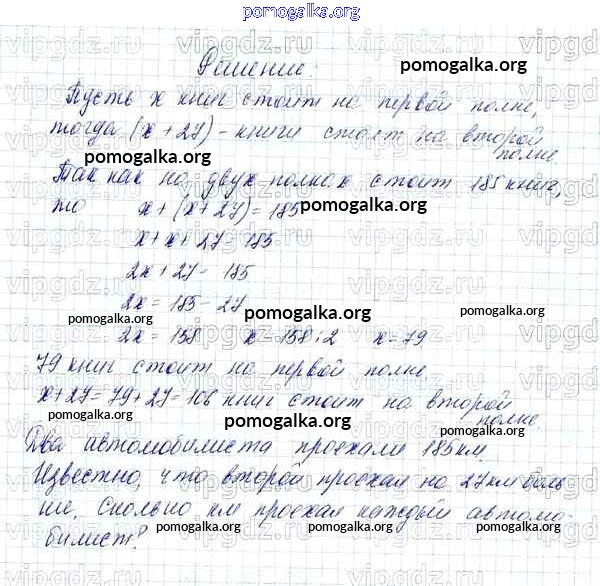 pomogalka.org
Решение:
pomogalka.org
Пусть x книг стоит на первой полке,
тогда (x + 27) - книги стоят на второй
полке
pomogalka.org
Так как на двух полках стоит 185 книг,
то x + (x + 27) = 185
pomogalka.org
x + x + 27 = 185
2x + 27 = 185
2x = 185 - 27
pomogalka.org pomogalka.org pomogalka.org
2x = 158 x = 158 : 2 x = 79
79 книг стоит на первой полке
x + 27 = 79 + 27 = 106 книг стоит на второй
полке.
pomogalka.org pomogalka.org pomogalka.org
Два автомобилиста проехали 185 км
Известно, что второй проехал на 27 км боль-
ше. Сколько км проехал каждый автомо-
pomogalka.org pomogalka.org pomogalka.org
билист?